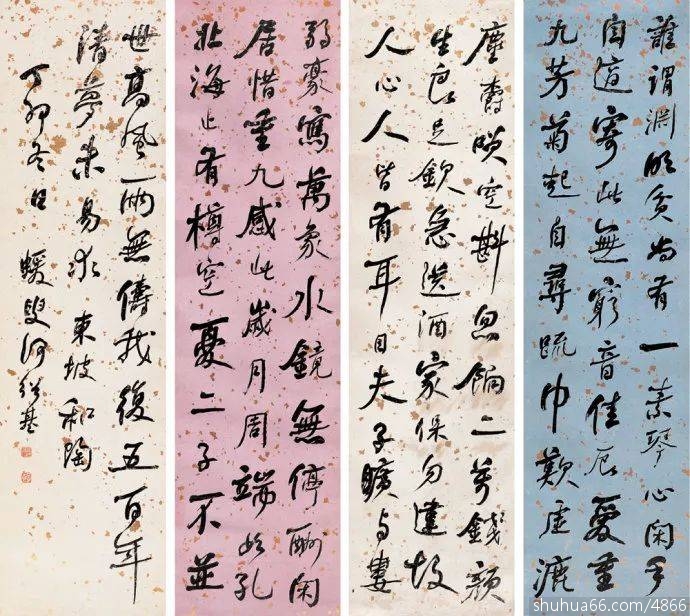 誰謂淵明貧尚有一素琴心閑手
自適寄此無窮音佳辰愛重
九芳菊起自尋疏巾歎虛漉
塵爵咲空斟忽餉二萬錢顏
生良足欽急送酒家保勿違故
人心人皆有耳目夫子曠與婁
弱豪寫萬象水鏡無停酬閑
居惜重九感此歲月周端如孔
北海止有樽空憂二子不並
世高風兩無儔我後五百年
清夢未易求 東坡和陶
丁卯冬日 蝯叟何紹基
shuhua66.com/4866